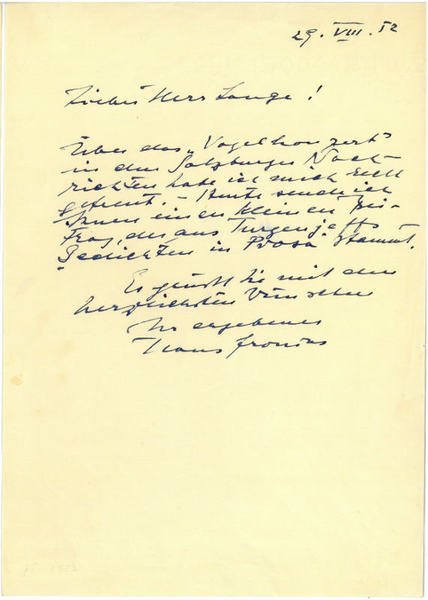 29. VIII. 52
Lieber Herr Lange!
Über das „Vogelkonzert“
in den Salzburger Nach-
richten habe ich mich sehr
gefreut. – Heute sende ich
Ihnen einen kleinen Bei-
trag, der aus Turgenjeffs
„Gedichten in Prosa“ stammt.
Es grüßt Sie mit den
herzlichsten Wünschen
Ihr ergebener
Hans Fronius